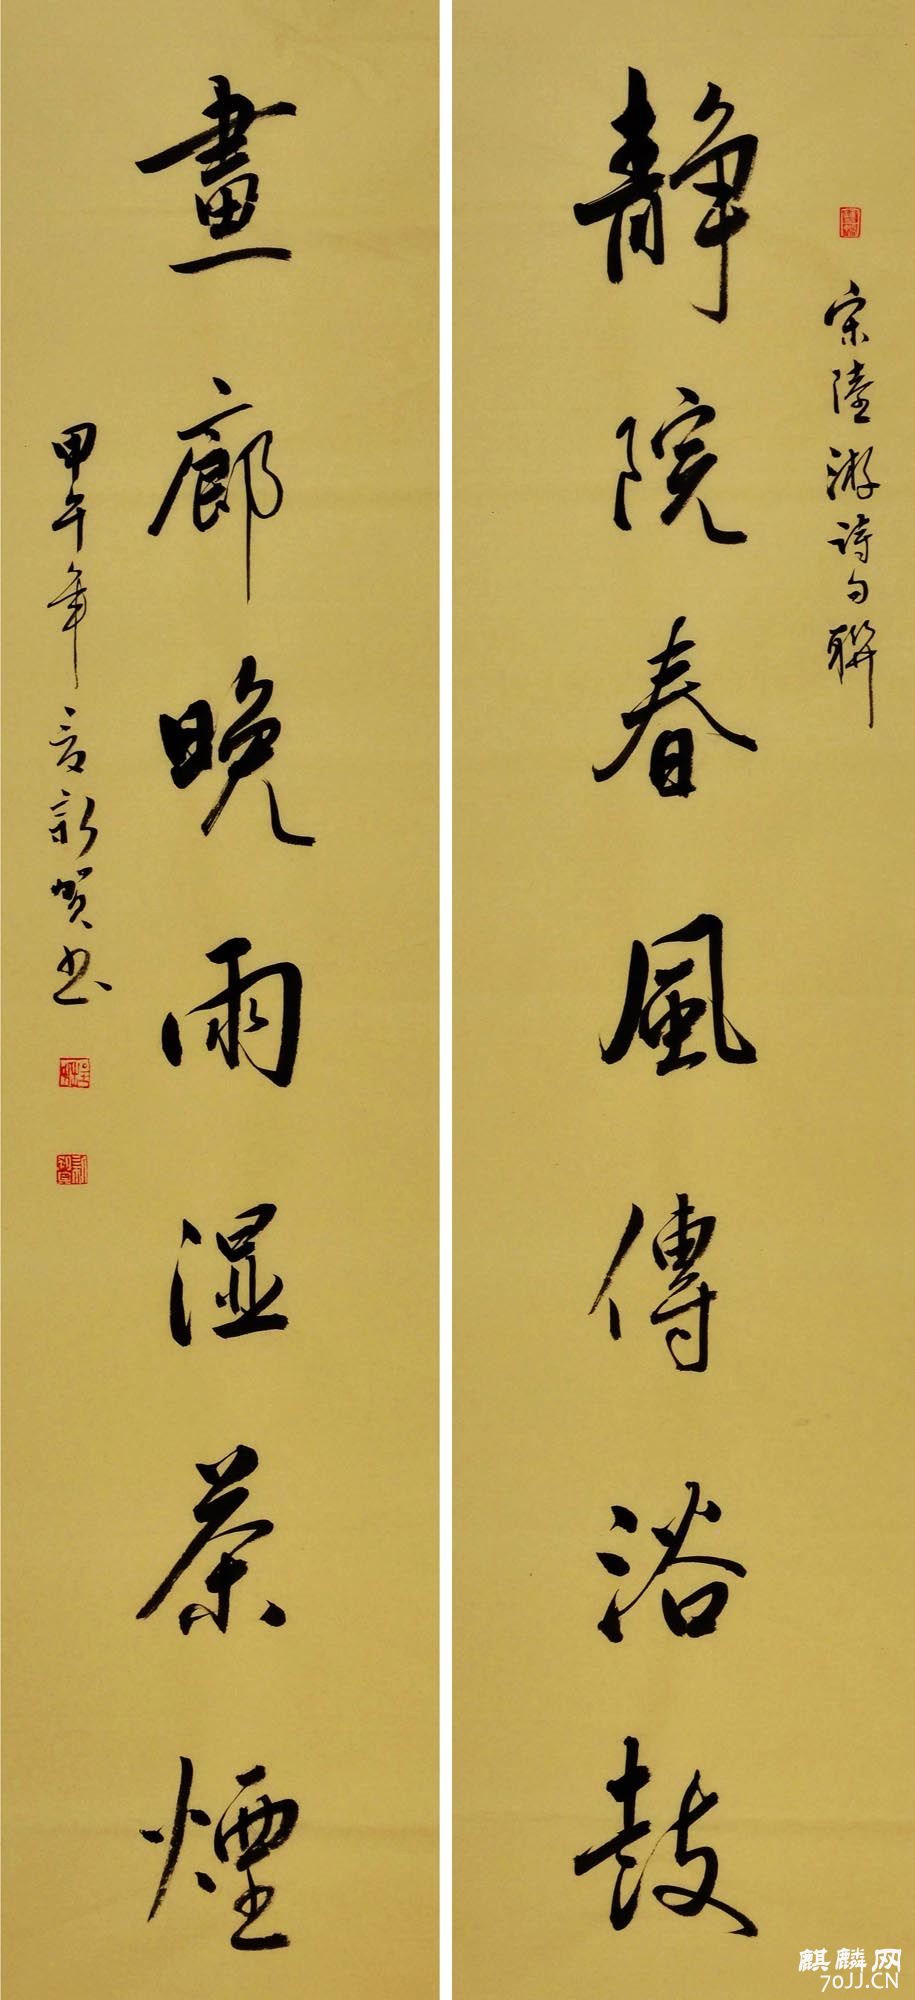 宋陸游詩句聯
静院春風傳浴鼓
畫廊晚雨湿茶煙
甲午年夏新賢书
麒麟网
70JJ.CN